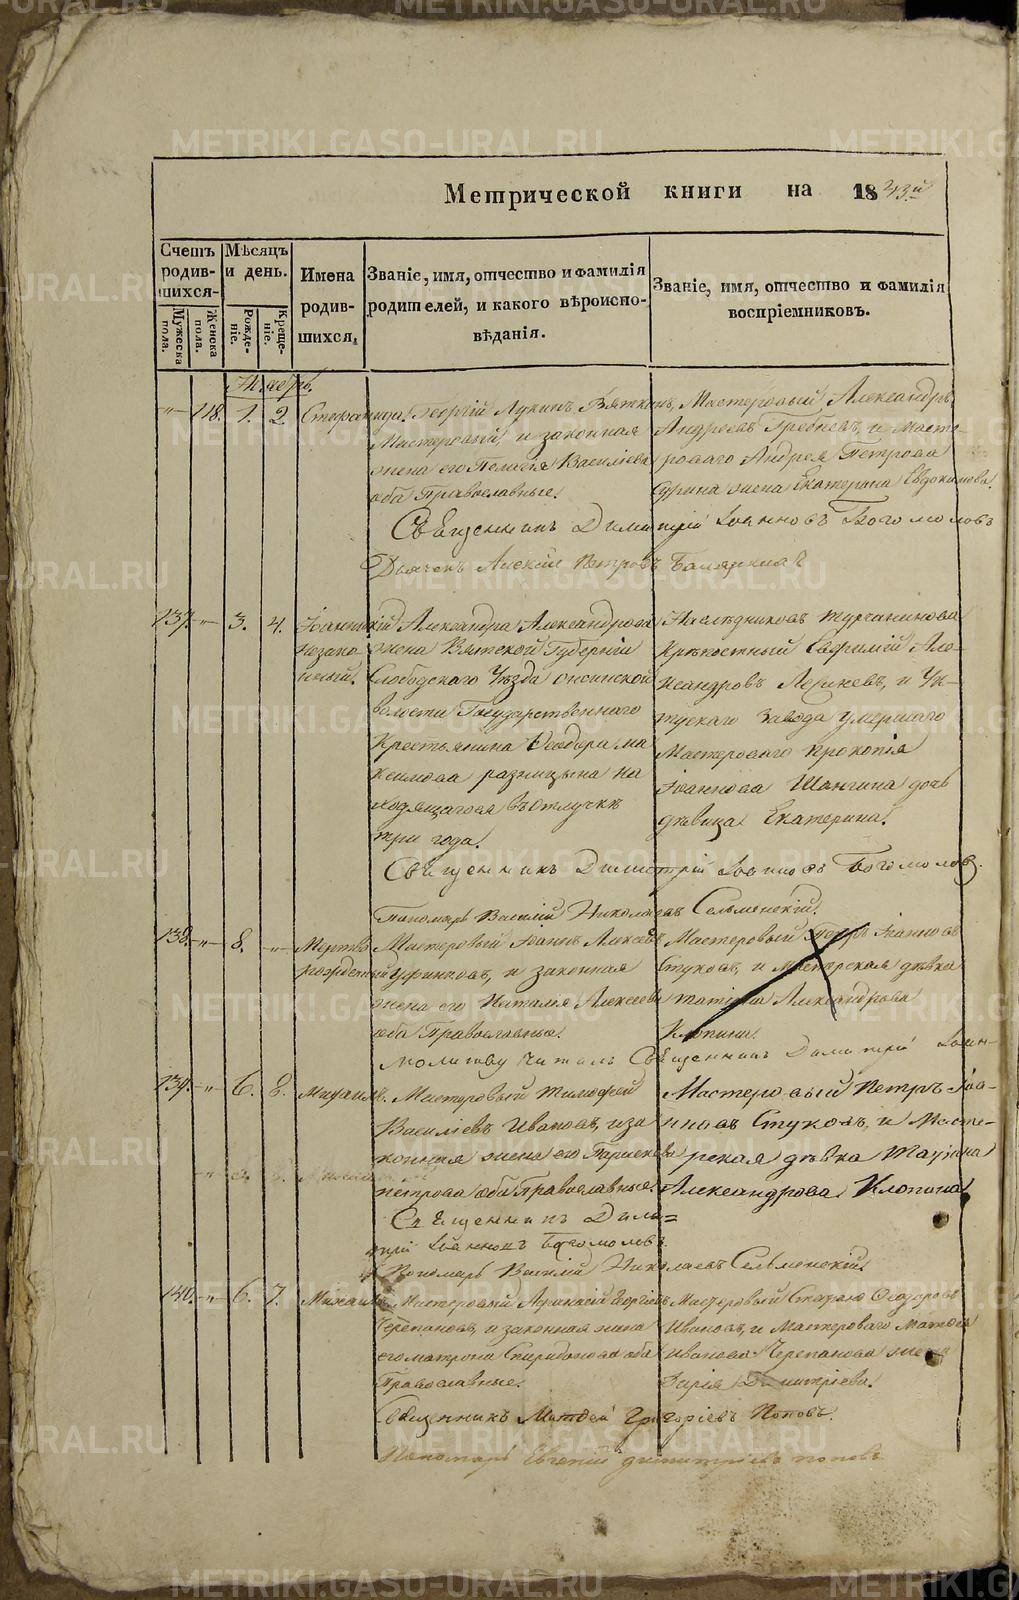 Метрической книги на 1843й
Счетъ родившихся.
Мѣсяцъ и день.
Имена родившихся.
Званіе, имя, отчество и фамилія родителей, и какого вѣроисповѣданія.
Званіе, имя, отчество и фамилія воспріемниковъ.
Мужеска пола.
Женска пола.
Рожденіе.
Крещеніе.
118. 1. 2.
Георгій Лукинъ Вяткинъ,
Мастеровый, и законная
жена его Пелагія Васильева
оба Православные.
Мастеровый Александръ
Андреевъ Гребневъ, и масте-
роваго Андрея Петрова
жена Екатерина Евдокимова.
Священникъ Димитрій Іоанновъ Богомоловъ
Дьячекъ Алексій Петровъ
137. 3. 4.
Іоанникій
незако-
нный.
Александра Александрова
жена Вятской Губерніи
Слободскаго Уѣзда
волости Государственного
Крестьянина Ѳеодора Ма-
ксимова на
ходящагося въ отлучкѣ
три года.
Наслѣдниковъ Турчанинова
Крѣпостный Евфимій Але-
ксандровъ и Ук-
тускаго завода умершаго
Мастероваго Прокопія
Іоаннова Шангина дочь
дѣвица Екатерина.
Священникъ Димитрій Іоанновъ Богомоловъ.
Пономарь Василій Николаевъ Сельменскій.
138. 8.
Мертво
рожденный
Мастеровый Іоаннъ Алексѣевъ
и законная
жена его Наталія Алексеева
оба Православные.
Мастеровый Петръ Іоанновъ
Стуковъ, и Мастерская дѣвка
Татіана Александрова
Клопина.
Молитву читалъ Священникъ Димитрій Іоан-
139. 6. 8.
Михаилъ.
Мастеровый Тимофей
Васильевъ Ивановъ, и за
конная жена его Параскева
Петрова оба Православные.
Мастеровый Петръ Іоа-
нновъ Стуковъ, и Масте-
рская дѣвка Татіана
Александрова Клопина.
Священникъ Дими=
трій Іоанновъ Богомоловъ
Пономарь Василій Николаевъ Сельменскій.
140. 6. 7.
Михаилъ.
Мастеровый Афанасій Георгіевъ
Черепановъ, и законная жена
его Матрона Спиридонова оба
Православные.
Мастеровый Стефанъ Ѳеодоровъ
Ивановъ, и Мастероваго Матвея
Иванова Черепанова жена
Дарья Димитріева.
Священникъ Матвей Григоріевъ Поповъ.
Пономарь Евгеній Димитріевъ Поповъ
METRIKI.GASO-URAL.RU